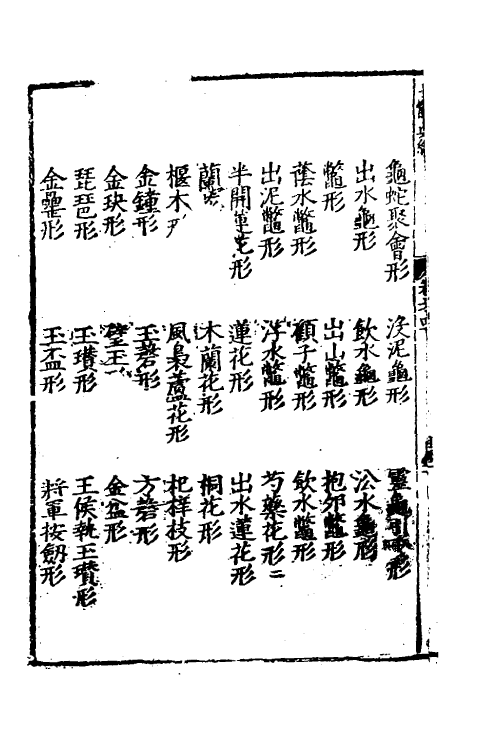 龜蛇聚會形　沒泥龜形　靈龜引形
出水龜形　飲水龜形　沿水龜形
鼈形　出山鼈形　抱卵鼈形
蔭水鼈形　顧子鼈形　飲水鼈形
出泥鼈形　浮水鼈形　芍藥花形二
半開蓮花形　蓮花形　出水蓮花形
蘭　木蘭花形　桐花形
椻木　風梟蘆花形　杞梓枝形
金鐘形　玉磬形　方磬形
金玦形　璧玉　金盆形
琵琶形　玉瓚形　王侯執玉瓚形
金罍形　玉盃形　將軍按劔形